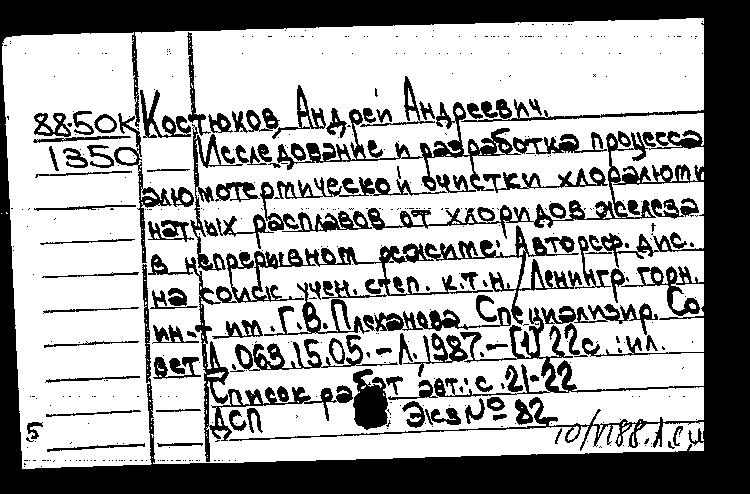 8850К Костюков, Андрей Андреевич.
1350 Исследование и разработка процесса
алюмотермической очистки хлоралюми
натных расплавов от хлоридов железа
в непрерывном режиме: Автореф. дис.
на соиск. учен. степ. к.т.н. Ленингр. горн.
ин-т им. Г.В. Плеханова. Специализир. Со-
вет Д.063.15.05.-Л. 1987.-[1] 22с.:ил.
Список работ авт.: с. 21-22
ДСП Экз № 82
5